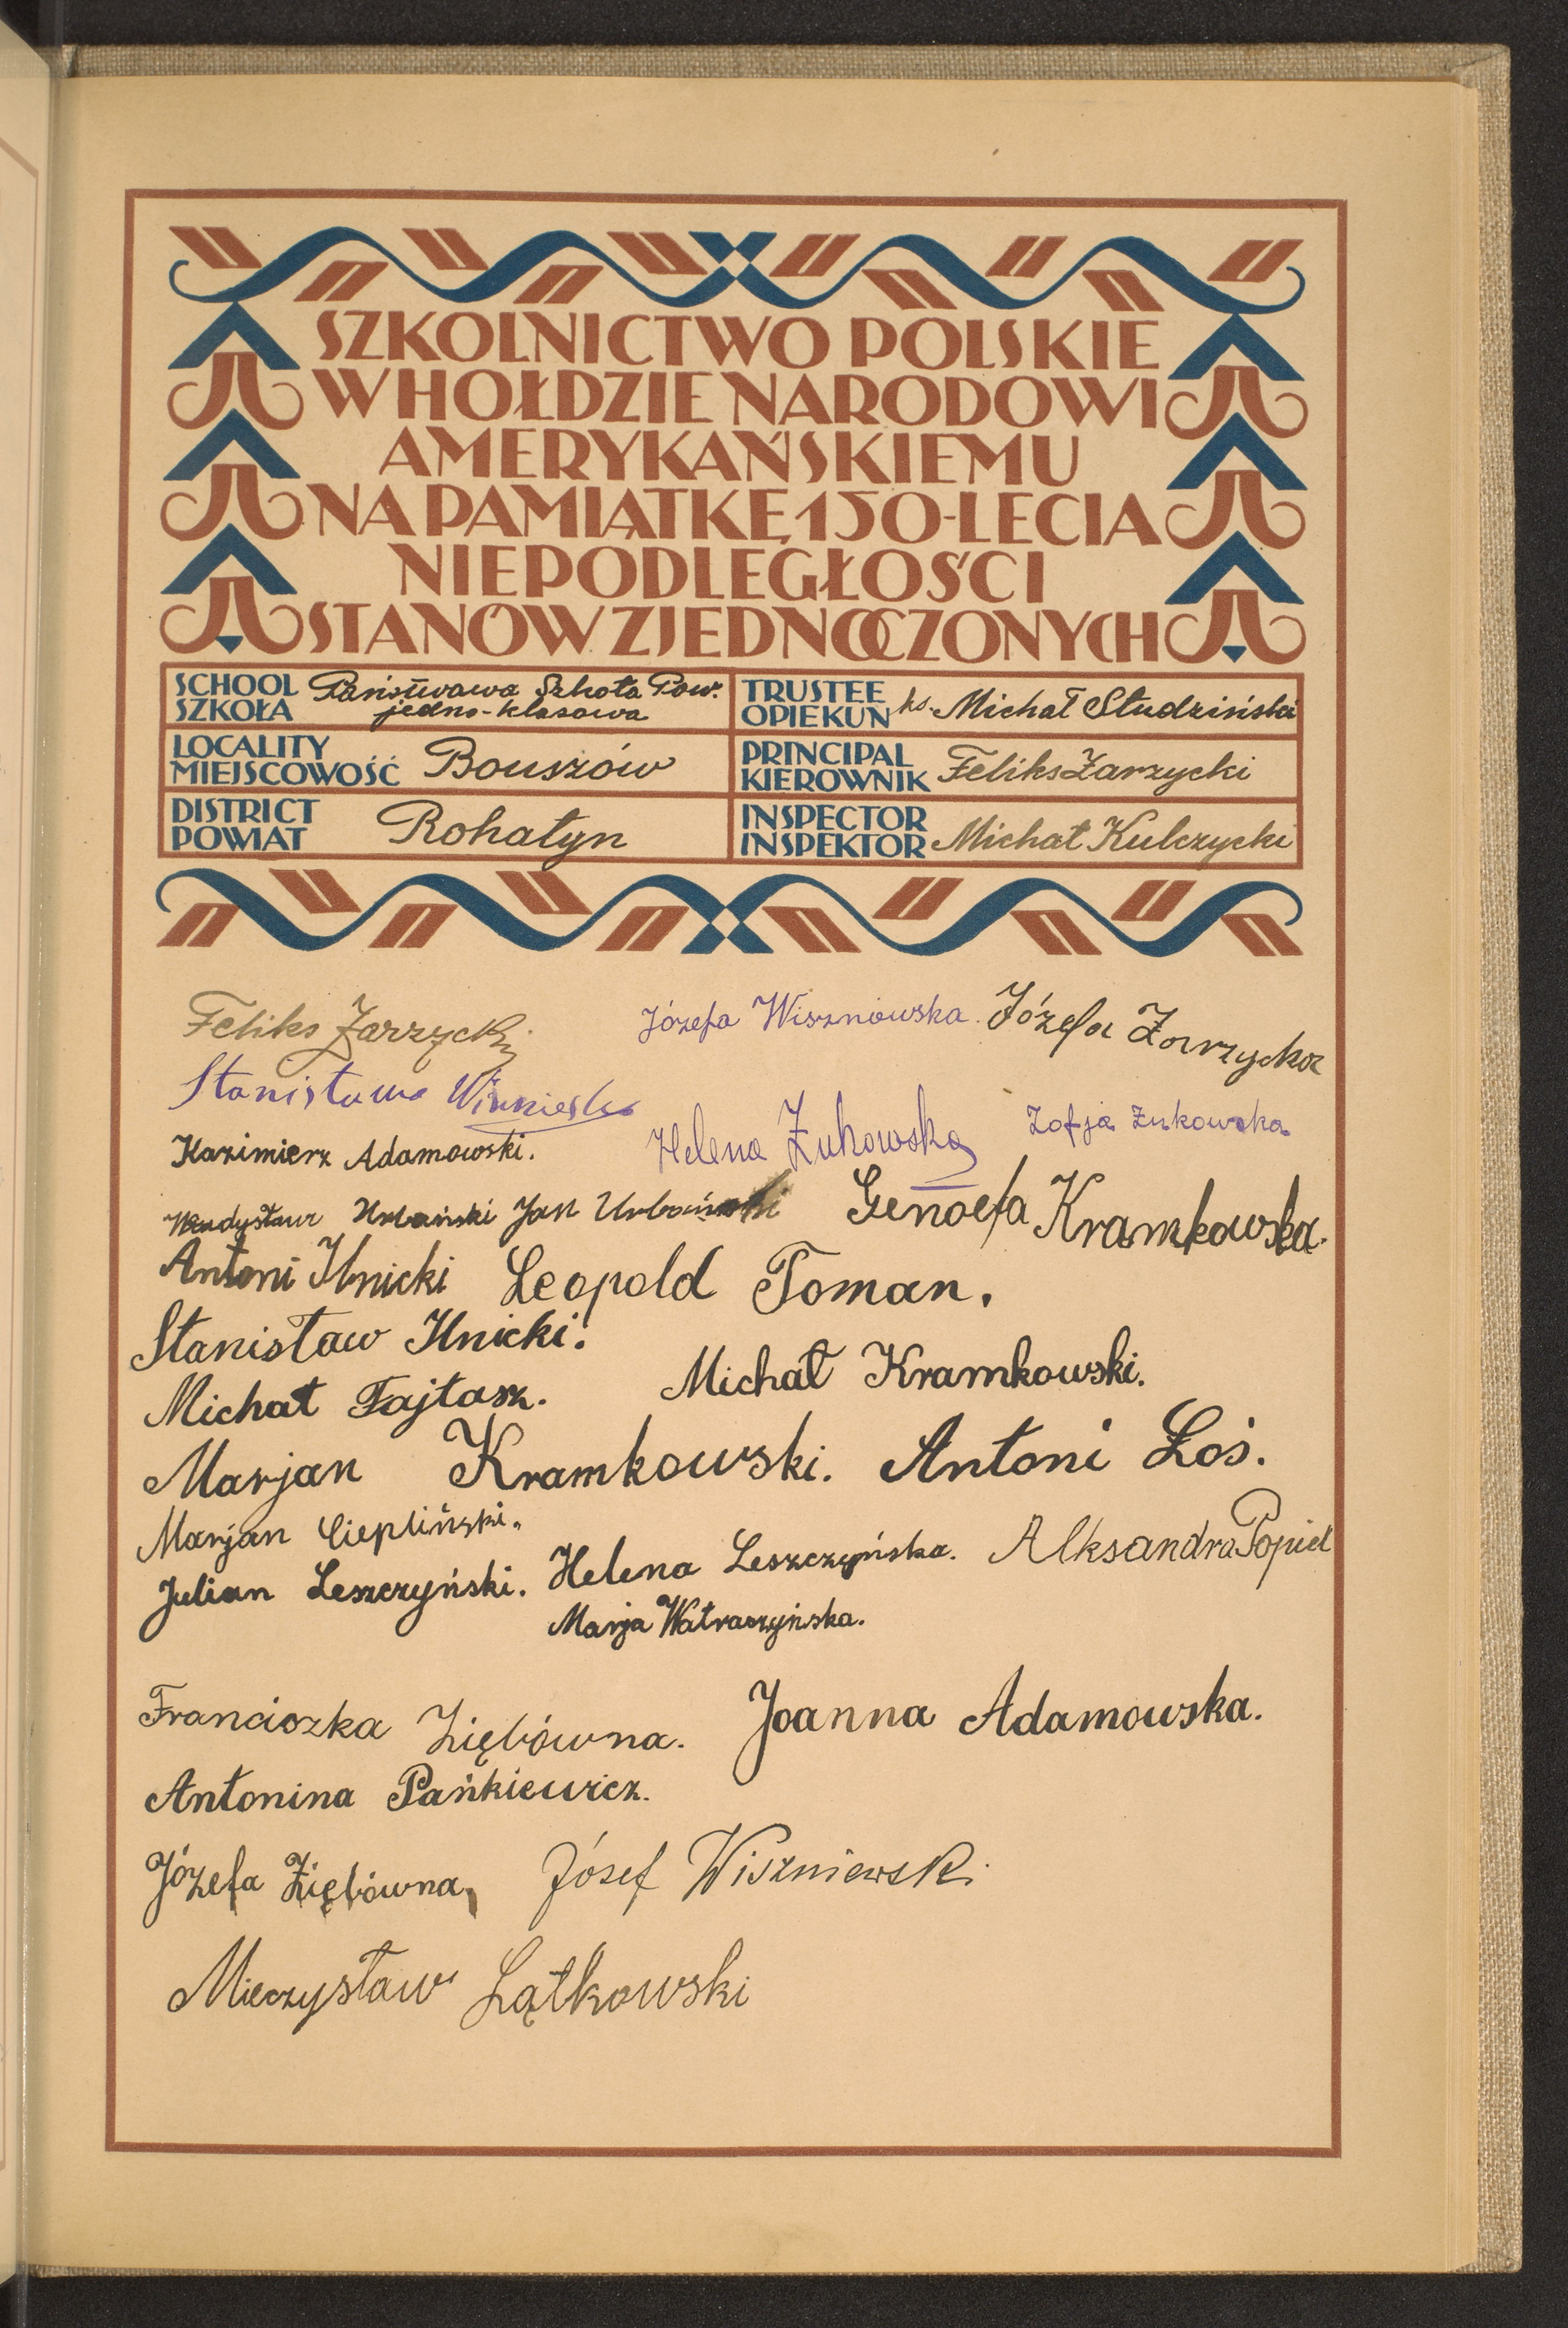 SZKOLNICTWO POLSKIE
W HOŁDZIE NARODOWI
AMERYKAŃSKIEMU
NA PAMIĄTKĘ 150-LECIA
NIEPODLEGŁOŚCI
STANÓW ZJEDNOCZONYCH
SCHOOL SZKOŁA Państwowa Szkoła Pow. jedno-klasowa
TRUSTEE OPIEKUN ks. Michał Studziński
LOCALITY MIEJSCOWOŚĆ Bouszów
PRINCIPAL KIEROWNIK Feliks Zarzycki
DISTRICT POWIAT Rohatyn
INSPECTOR INSPEKTOR Michał Kulczycki
Feliks Zarzycki Józefa Wiszniowska. Józefa Zarzycka
Stanisława
Kazimierz Adamowski. Helena Żukowska Zofja Żukowska
Władysław Urbański Jan Urbański Genoefa Kramkowska.
Antoni Ilnicki Leopold Toman.
Stanisław Ilnicki.
Michał Fajtasz. Michał Kramkowski.
Marjan Kramkowski. Antoni Łoś.
Marjan Ciepliński.
Julian Leszczyński. Helena Leszczyńska. Alksandra Popiel
Marja Watraszyńska.
Franciszka Ziębówna. Joanna Adamowska.
Antonina Pańkiewicz.
Józefa Ziębówna, Józef Wiszniewski
Mieczysław Łątkowski